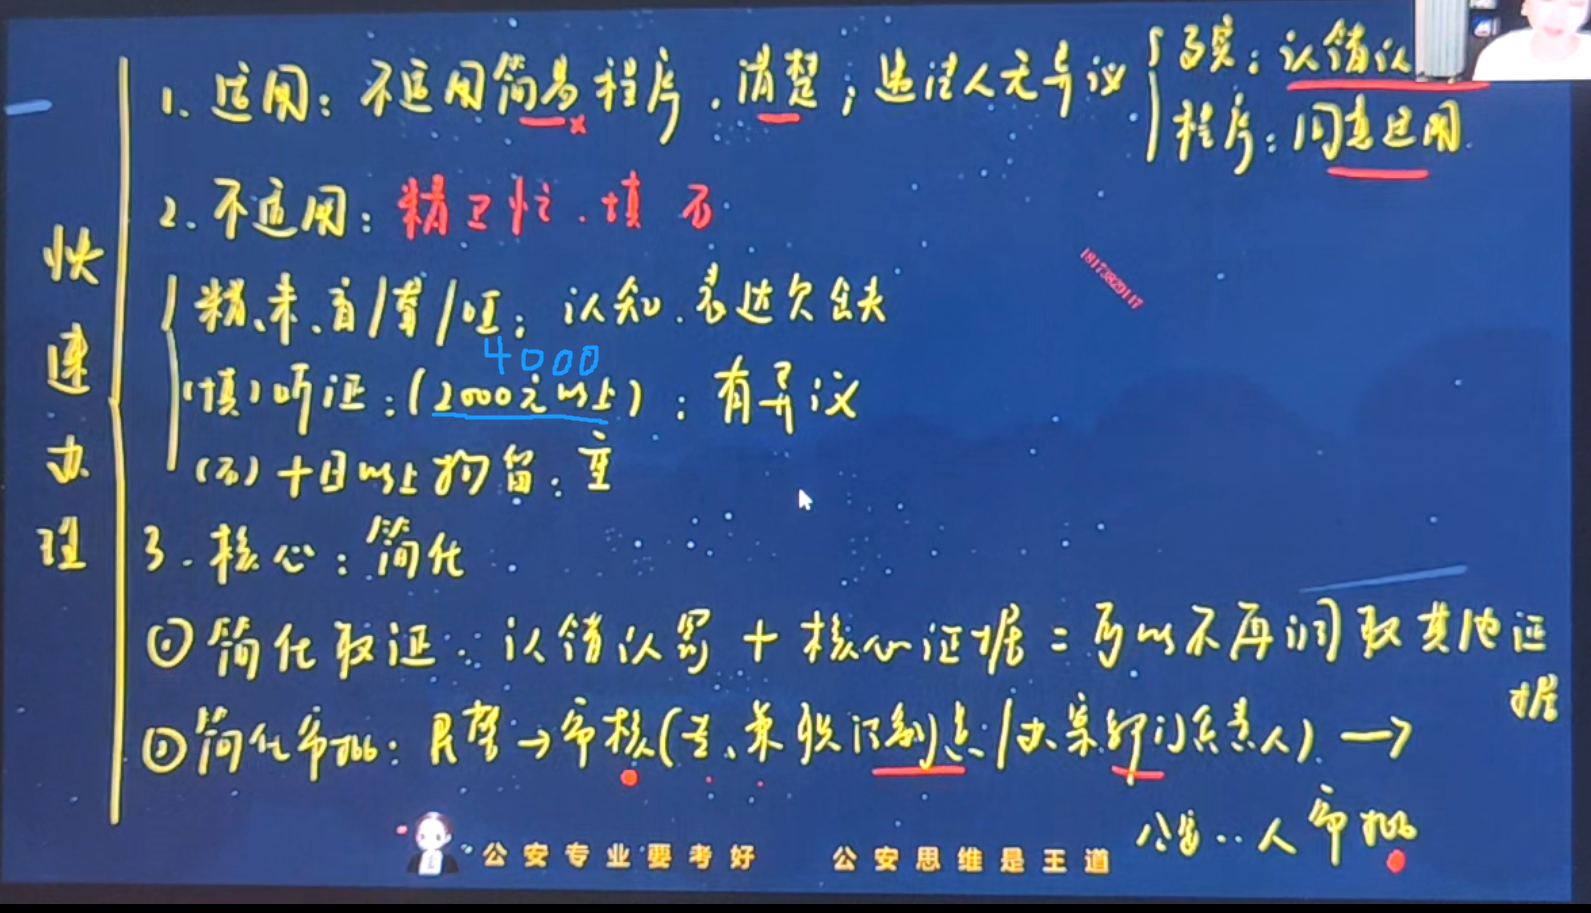 快速办理
1. 适用：不适用简易程序，清楚；违法人无异议
事实：认错认
程序：同意适用
2. 不适用：精卫忙，填 石
精、未、盲/聋/哑；认知、表达欠缺
4000
(填) 听证：(2000元以上)：有异议
(石) 十日以上拘留：重
3. 核心：简化
① 简化取证：认错认罚 + 核心证据 = 可以不再调取其他证据
② 简化审批：民警→审核(专、兼职法制员/办案部门负责人) →
公安‥人审批
18173829117
公安专业要考好 公安思维是王道